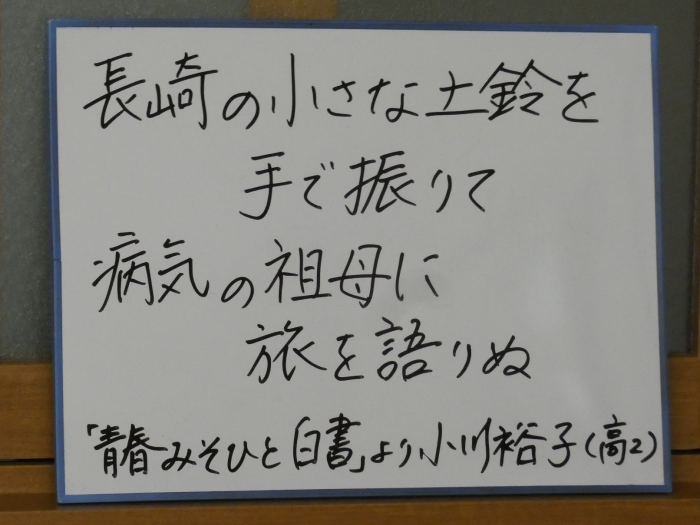 長崎の小さな土鈴を
手で振りて
病気の祖母に
旅を語りぬ
「青春みそひと白書」より小川裕子(高2)